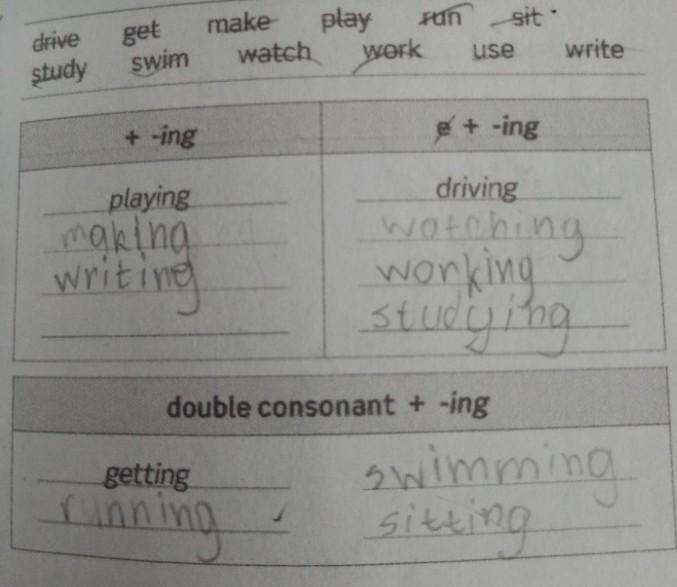 drive get make play run sit
study swim watch work use write
+ -ing
e + -ing
playing
making
writing
driving
watching
working
studying
double consonant + -ing
getting
running
swimming
sitting